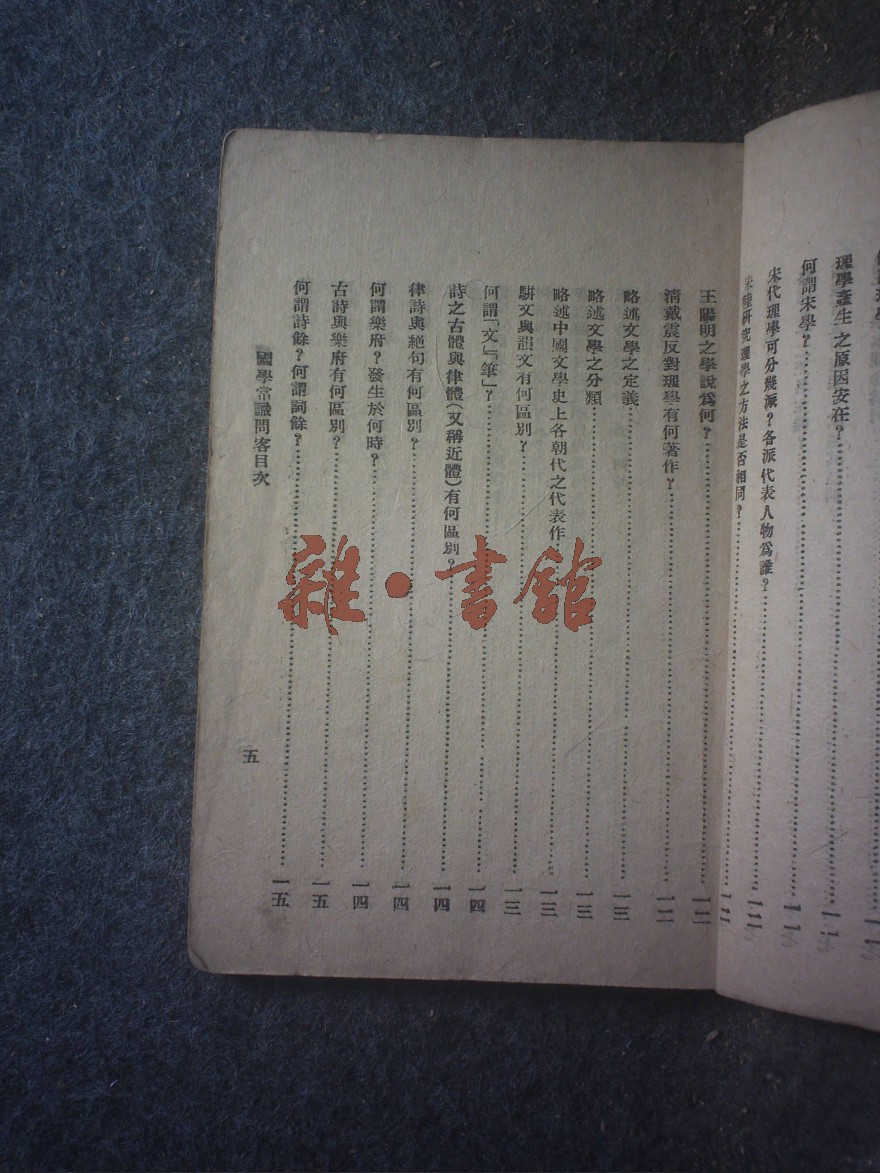 理學產生之原因安在？……一一
何謂宋學？……一一
宋代理學可分幾派？各派代表人物爲誰？……一二
朱陸研究理學之方法是否相同？……一二
王陽明之學說爲何？……一二
淸戴震反對理學有何著作？……一二
略述文學之定義……一三
略述文學之分類……一三
略述中國文學史上各朝代之代表作……一三
駢文與韻文有何區別？……一三
何謂「文」「筆」？……一四
詩之古體與律體（又稱近體）有何區別？……一四
律詩與絕句有何區別？……一四
何謂樂府？發生於何時？……一四
古詩與樂府有何區別？……一五
何謂詩餘？何謂詞餘？……一五
國學常識問答目次
五
雜·書館